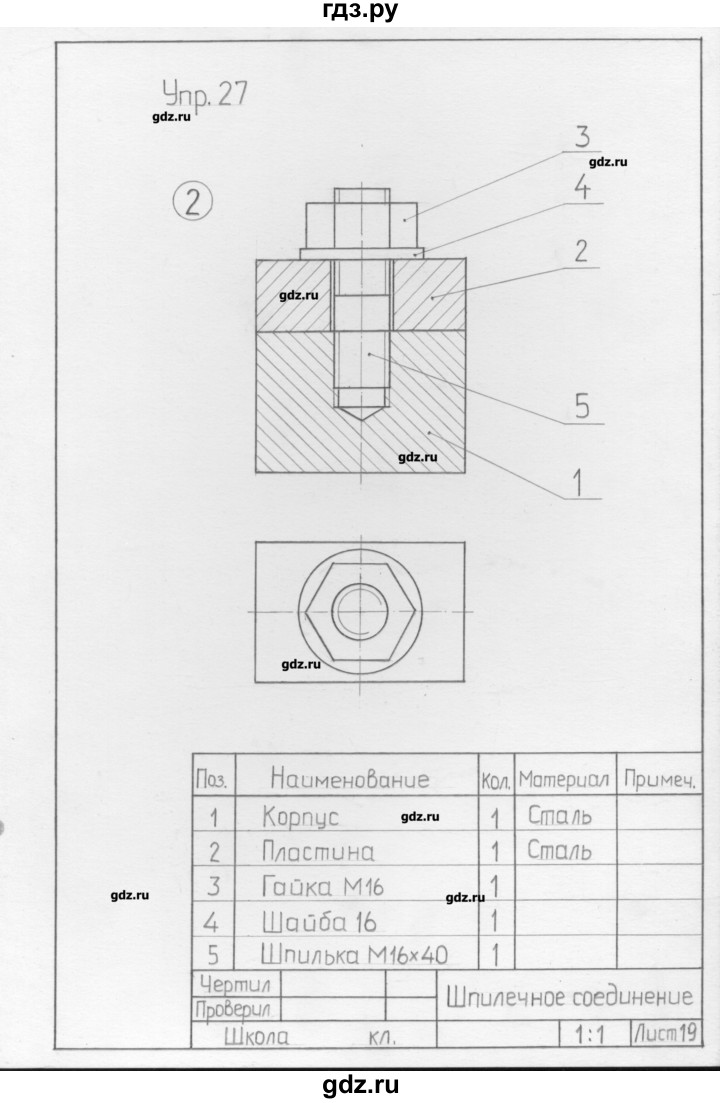 гдз.ру
Упр. 27
gdz.ru
3
gdz.ru
2
4
2
gdz.ru
5
gdz.ru
1
gdz.ru
Поз. Наименование Кол. Материал Примеч.
1 Корпус gdz.ru 1 Сталь
2 Пластина 1 Сталь
3 Гайка М16 1
gdz.ru
gdz.ru
4 Шайба 16 1
5 Шпилька М16×40 1
Чертил
Шпилечное соединение
Проверил
Школа кл. 1:1 Лист19
gdz.ru